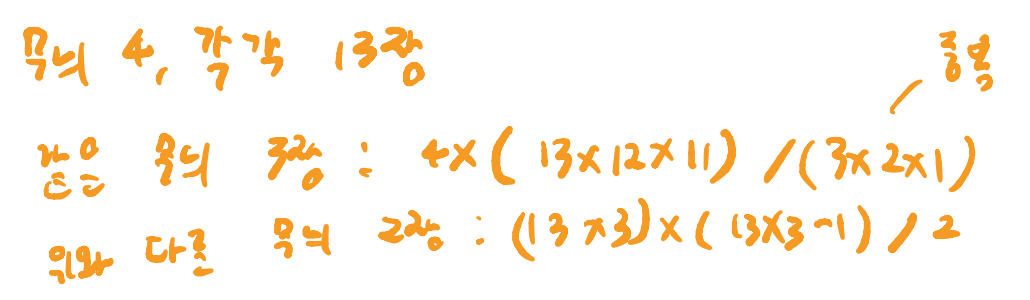 무늬 4, 각각 13장
중복
같은 무늬 3장 : 4×(13×12×11)/(3×2×1)
위와 다른 무늬 2장 : (13×3)×(13×3-1)/2